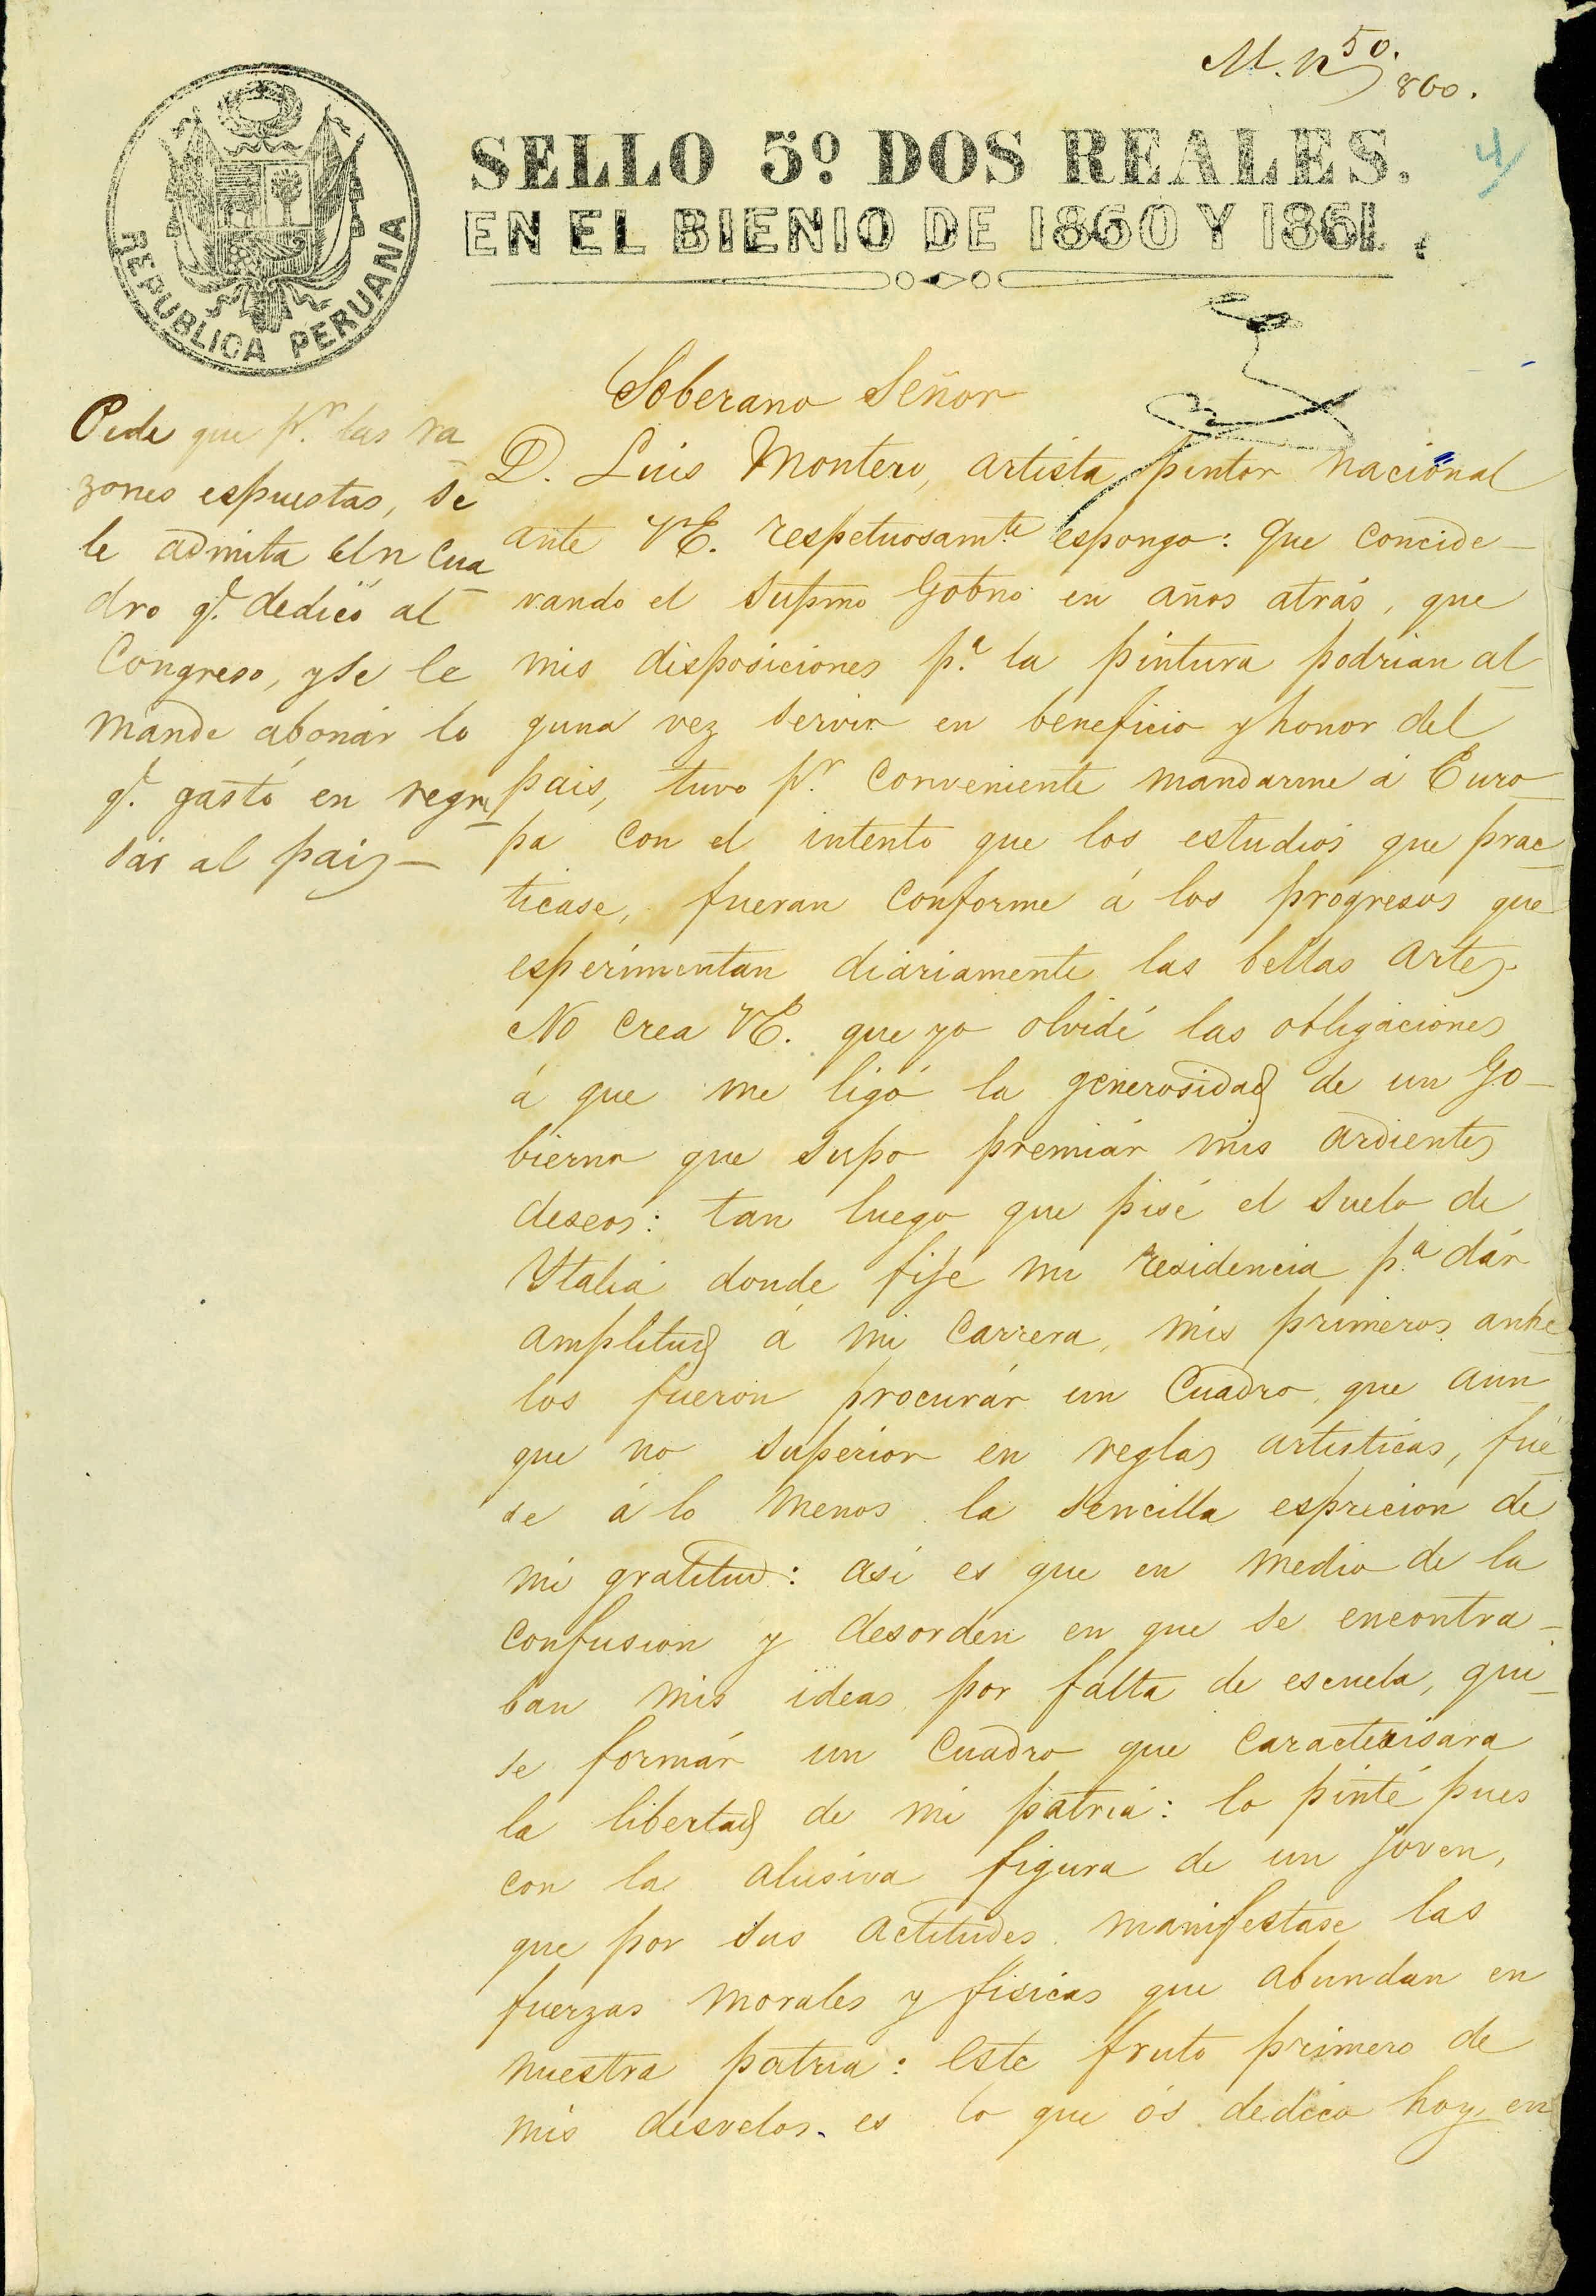 M. n 50.
860.
4
SELLO 5º DOS REALES.
EN EL BIENIO DE 1860 Y 1861.
REPUBLICA PERUANA
Soberano Señor
Pide que pr. las ra
zones espuestas, se
le admita Un Cua
dro qe. dedicó al
Congreso, y se le
mande abonár lo
qe. gastó en regre
sár al pais—
D. Luis Montero, artista pintor nacional
ante VE. respetuosamte. espongo: que concide-
rando el Supmo Gobno en años atrás, que
mis disposiciones pa. la pintura podrian al
guna vez servir en beneficio y honor del
pais, tuvo pr. conveniente mandarme á Euro
pa con el intento que los estudios que prac
ticase, fueran conforme á los progresos que
esperimentan diáriamente las bellas artes.
No crea VE. que yo olvidé las obligaciones
á que me ligó la generosidad de un Go-
bierno que supo premiár mis ardientes
deseos: tan luego que pisé el suelo de
Ytalia donde fije mi residencia pa. dár
amplitud á mi carrera, mis primeros anhe
los fueron procurár un Cuadro, que aun
que no superior en reglas artisticas, fue
se á lo menos la sencilla esprecion de
mi gratitud: asi es que en medio de la
confusion y desorden en que se encontra-
ban mis ideas por falta de escuela, qui
se formár un Cuadro que caracterisara
la libertad de mi pátria: lo pinté pues
con la alusiva figura de un joven,
que por sus actitudes manifestase las
fuerzas morales y fisicas que abundan en
nuestra patria: este fruto primero de
mis desvelos es lo que ós dedico hoy en